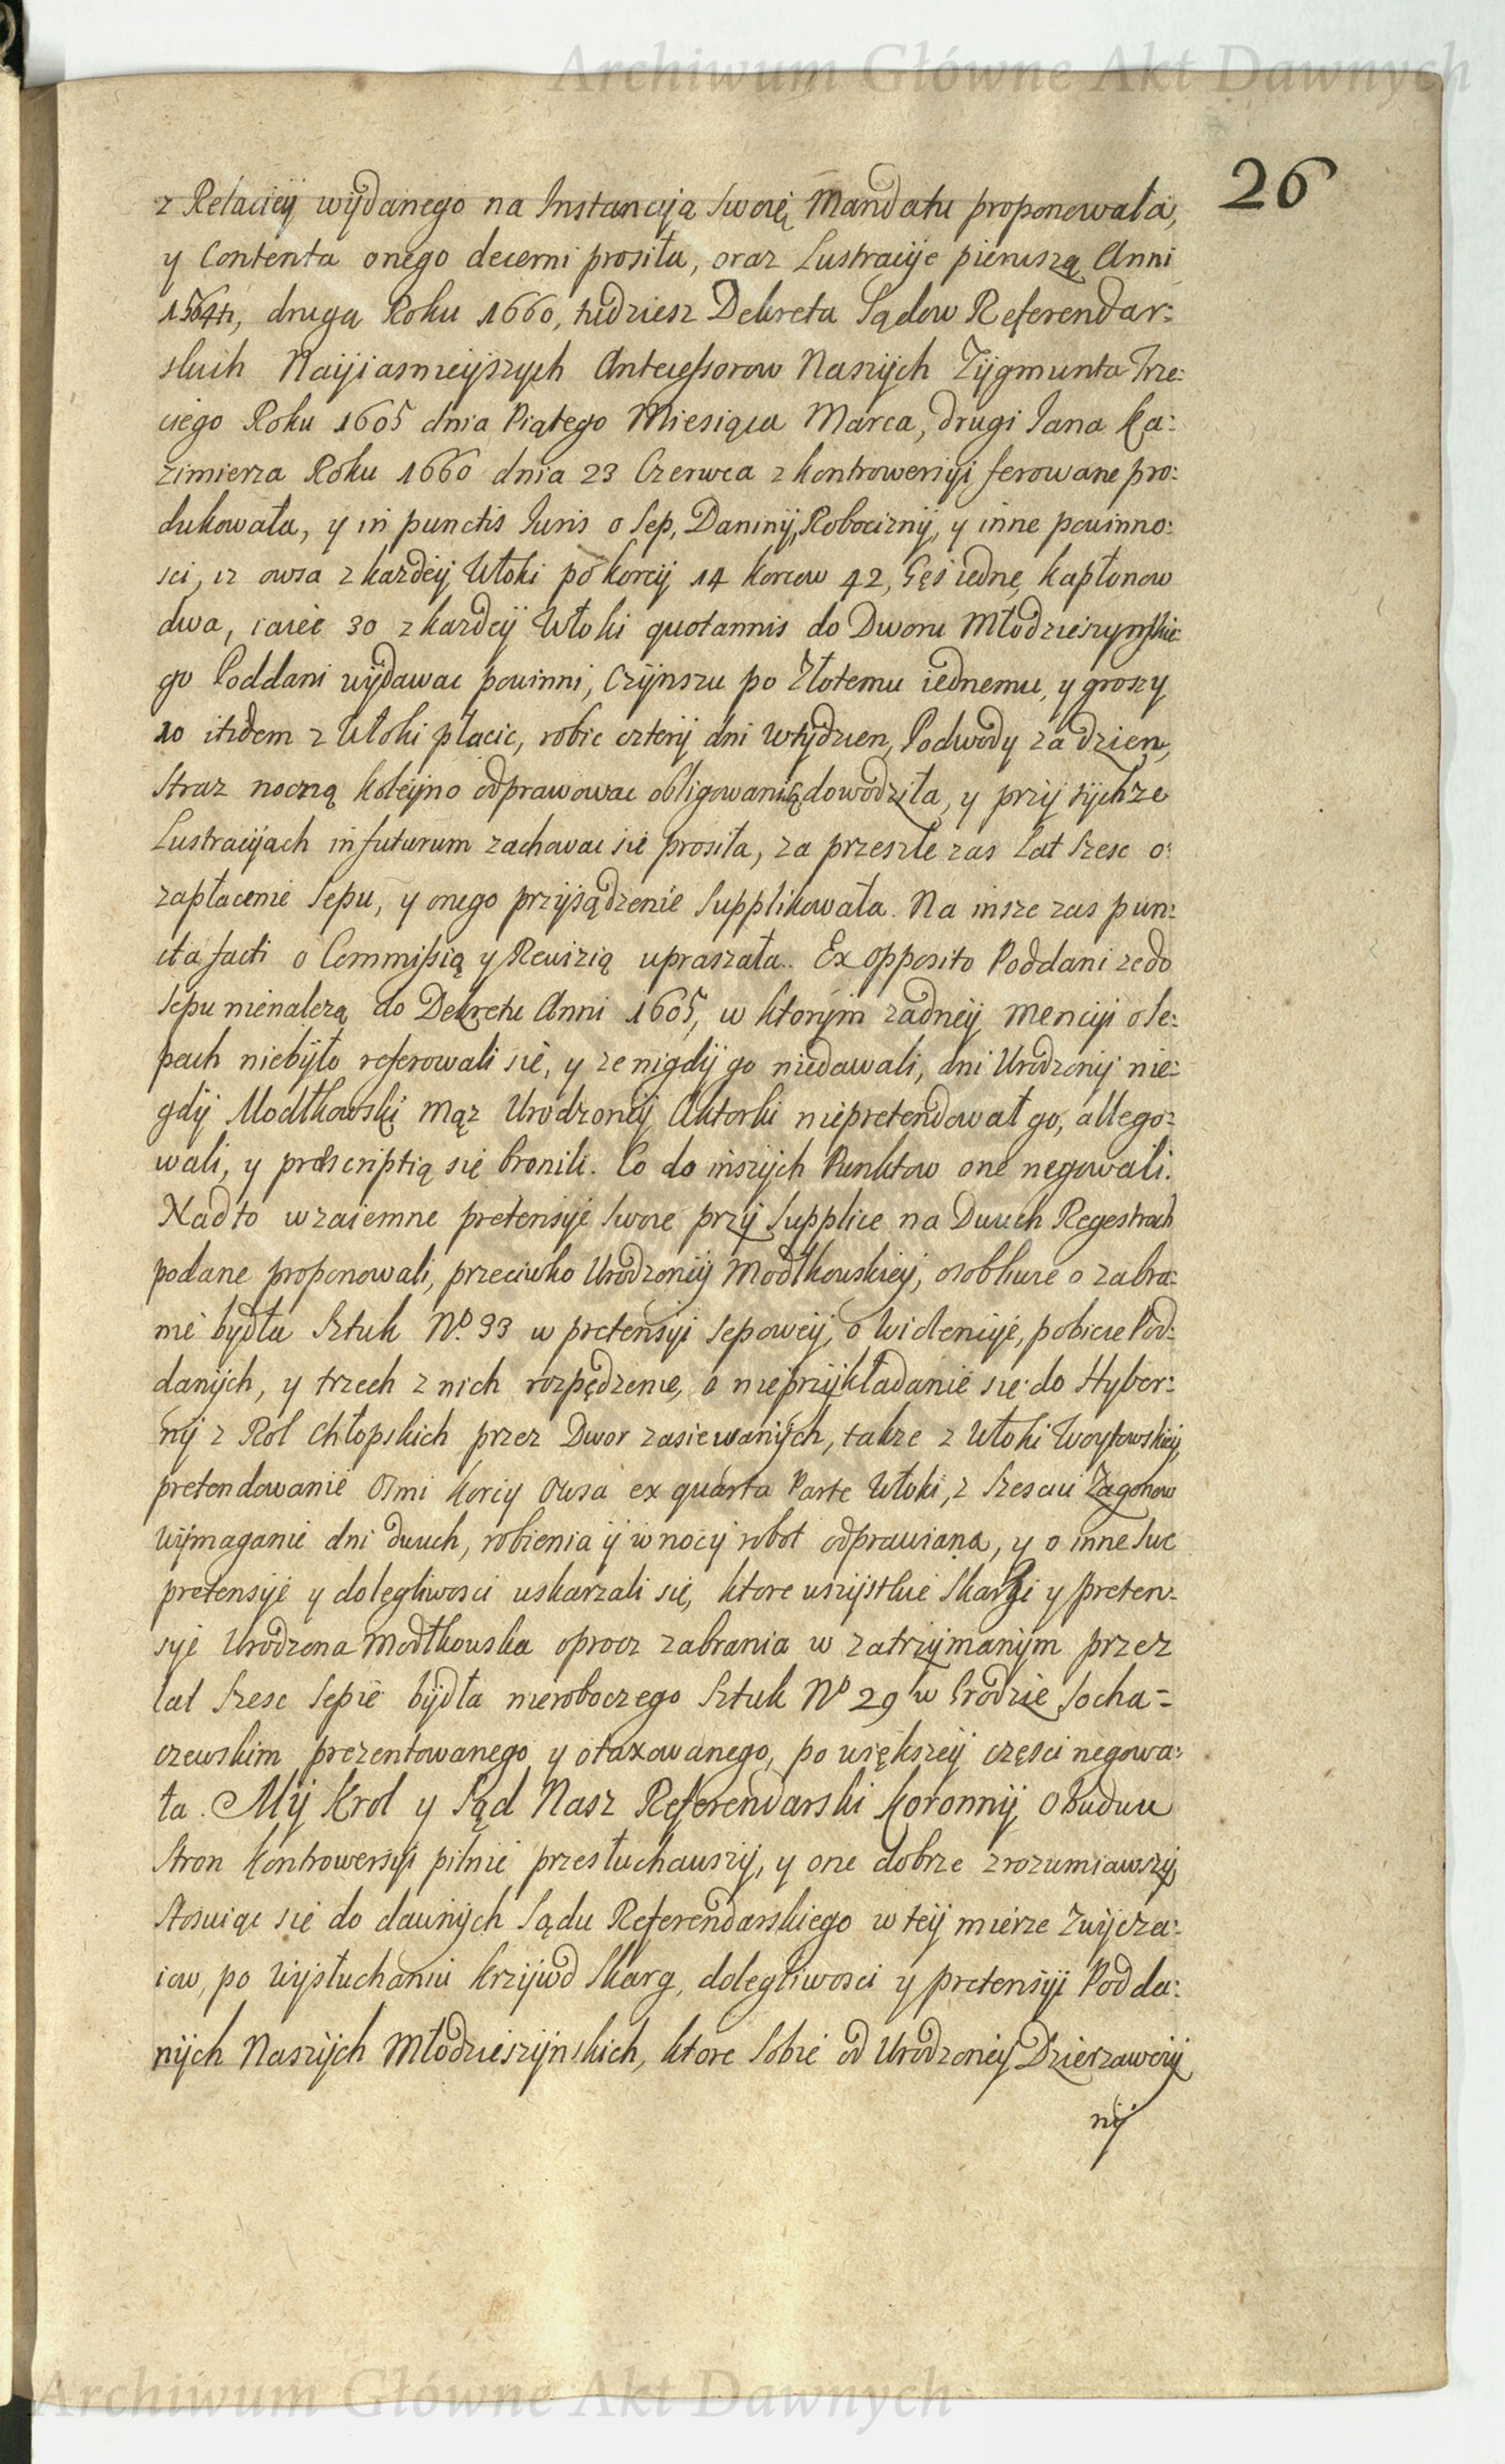 Archiwum Główne Akt Dawnych
26
z Relaciey wÿdanego na Instancyją Swoię Mandatu proponowała,
y Contenta onego decerni prosiła, oraz Lustracÿe pierwszą Anni
1564ti, druga Roku 1660, tudziesz Dekreta Sądow Referendar:
skich Naÿiasnieÿszych Antecessorow Naszÿch Zÿgmunta Trze:
ciego Roku 1605 dnia Piątego Miesiąca Marca, drugi Jana Ka:
zimierza Roku 1660 dnia 23 Czerwca z kontrowersÿi ferowane pro:
dukowała, y in punctis Juris o Sep, Daninÿ, Robociznÿ, y inne powinno:
sci, iz owsa z kazdeÿ Włoki po korcÿ 14 korcow 42, Gęś iednę, kapłonow
dwa, iaiec 30 z kazdeÿ Włoki quotannis do Dworu Młodzieszynskie
go Poddani wÿdawac powinni, Czÿnszu po Złotemu iednemu, y groszy
10 itidem z Włoki płacic, robic czterÿ dni w tÿdzien, Podwody za dzien,
Straz nocną koleÿno odprawowac obligowani są dowodziła, y przÿ tÿchze
Lustracÿach in futurum zachowac sie prosiła, za przeszłe zas Lat Szesc o:
zapłacenie Sepu, y onego przÿsądzenie Supplikowała. Na insze zas pun:
cta facti o Commissią y Rewizią upraszała. Ex opposito Poddani ze do
Sepu nienalezą do Dekretu Anni 1605, w ktorÿm zadneÿ mencÿi o Se:
pach niebÿło referowali sie, y ze nigdÿ go niedawali, ani Urodzonÿ nie:
gdÿ Modłkowski mąz Urodzoneÿ Aktorki niepretendował go, allego:
wali, y praescriptią się bronili. Co do inszÿch Punktow one negowali.
Nadto wzaiemne pretensÿe Swoie przÿ Supplice na Dwuch Regestrach
podane proponowali, przeciwko Urodzoneÿ Modłkowskieÿ, osobliwie o zabra:
nie bydła Sztuk No. 33 w pretensÿi Sepoweÿ, o wiolencÿe, pobicie Pod:
danÿch, y trzech z nich rozpędzenie, o nieprzÿkładanie sie do Hyber:
nÿ z Rol Chłopskich przez Dwor zasiewanÿch, takze z Włoki Woytowskieÿ,
pretendowanie Osmi korcÿ Owsa ex quarta Parte Włoki, z Szesciu Zagonow
wÿmaganie dni dwuch, robienia ÿ w nocÿ robot odprawiana, y o inne Swe
pretensÿe y dolegliwosci uskarzali sie, ktore wszÿstkie Skargi y preten:
sÿe Urodzona Modłkowska oprocz zabrania w zatrzÿmanÿm przez
lat Szesc Sepie bÿdła nieroboczego Sztuk No 29 w Grodzie Socha=
czewskim prezentowanego y otaxowanego, po większeÿ częsci negowa:
ła. Mÿ Krol y Sąd Nasz Referendarski Koronnÿ Obudwu
Stron kontrowersÿi pilnie przesłuchawszÿ, y one dobrze zrozumiawszÿ
Stosuiąc sie do dawnÿch Sądu Referendarskiego w teÿ mierze Zwÿcza:
iow, po Wÿsłuchaniu krzÿwd Skarg, dolegliwosci y pretensÿi Podda:
nÿch Naszÿch Młodzieszÿnskich, ktore Sobie od Urodzoneÿ Dzierzawczÿ
nÿ
Archiwum Główne Akt Dawnych